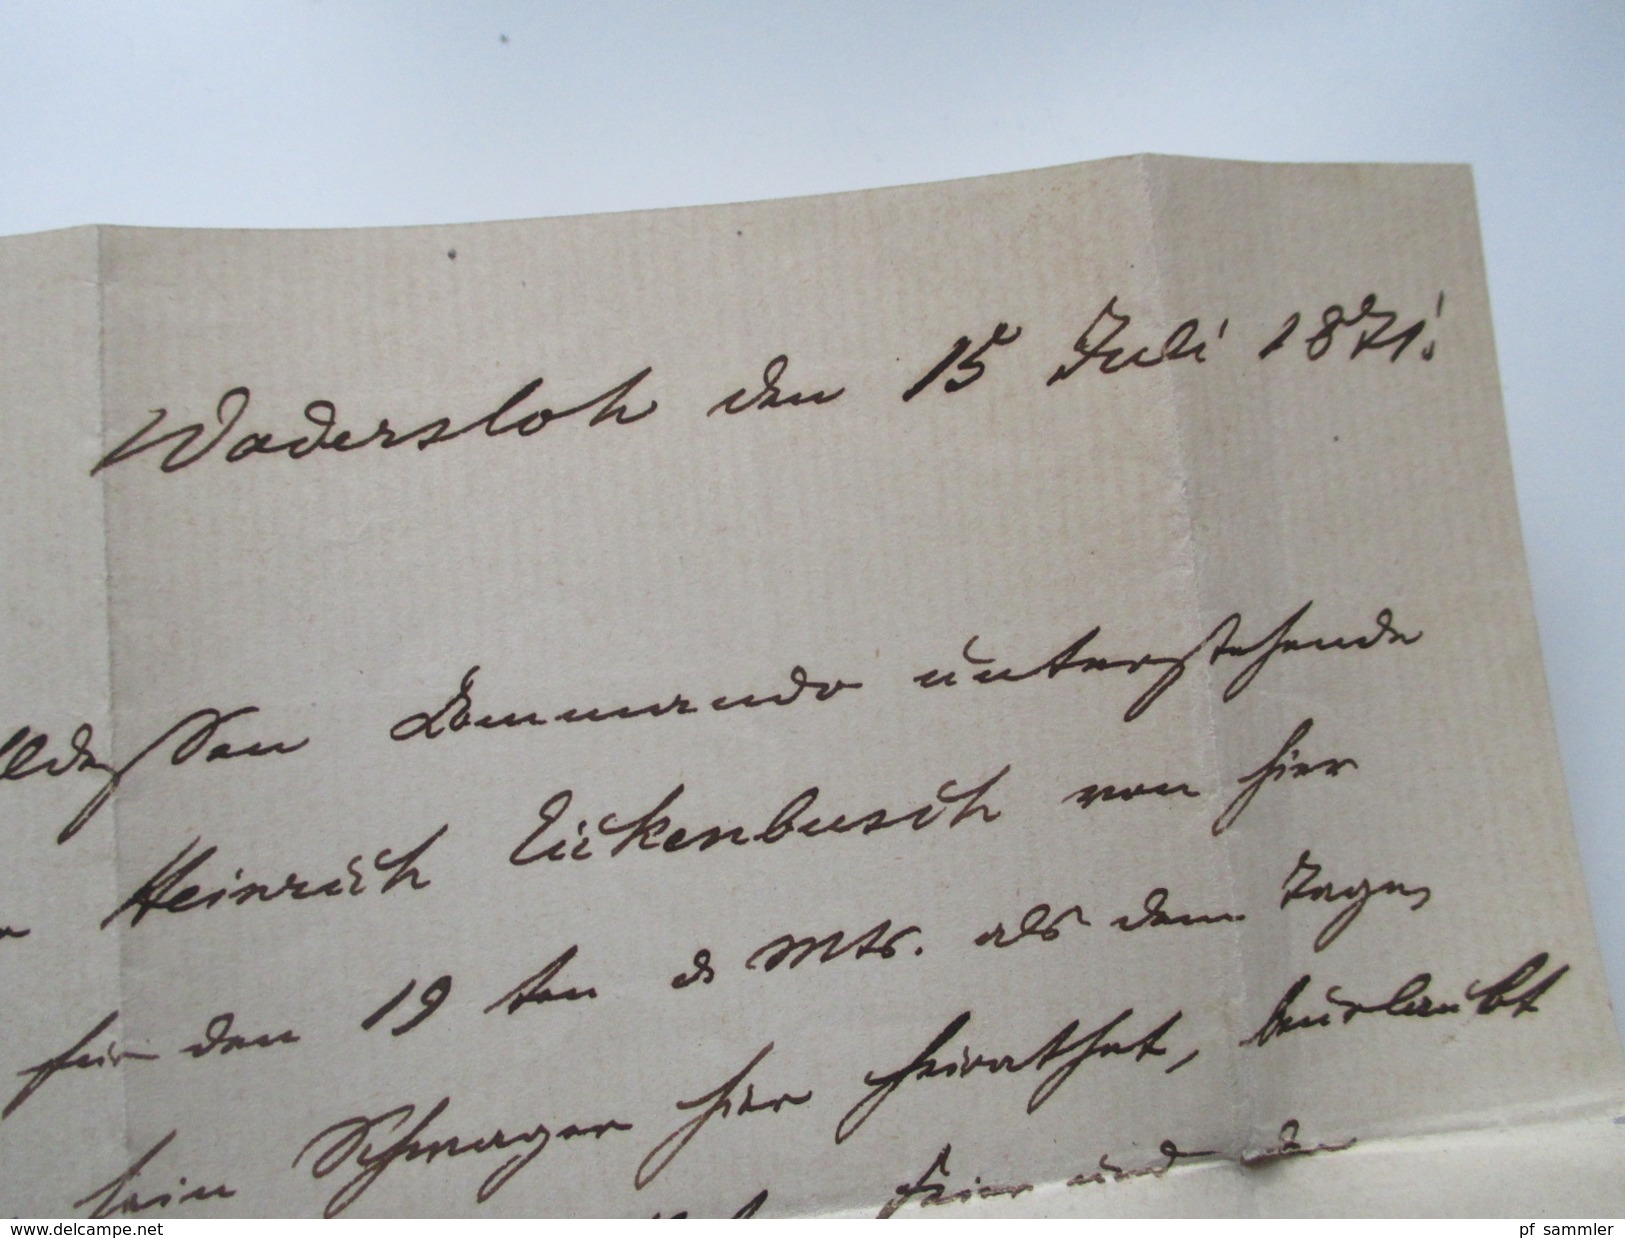 Wadersloh den 15 Juli 1871.
Commando unterstehende
Heinrich Eickenbusch von hier
für den 19 ten d. Mts. als dem Tage,
sein Schwager hier heirathet, beurlaubt
Feier und der
www.delcampe.net
pf_sammler